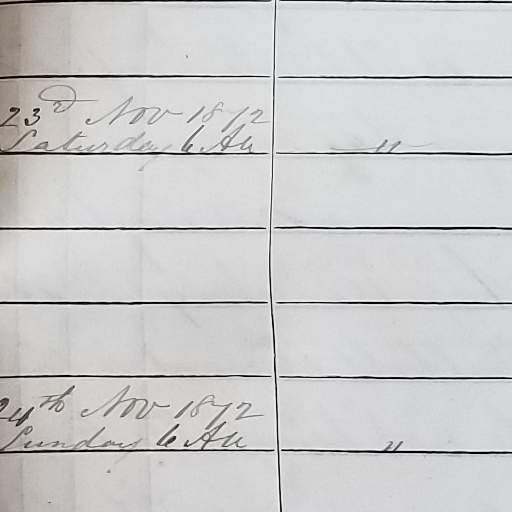 23rd Nov 1872
Saturday 6 AM "
24th Nov 1872
Sunday 6 AM "